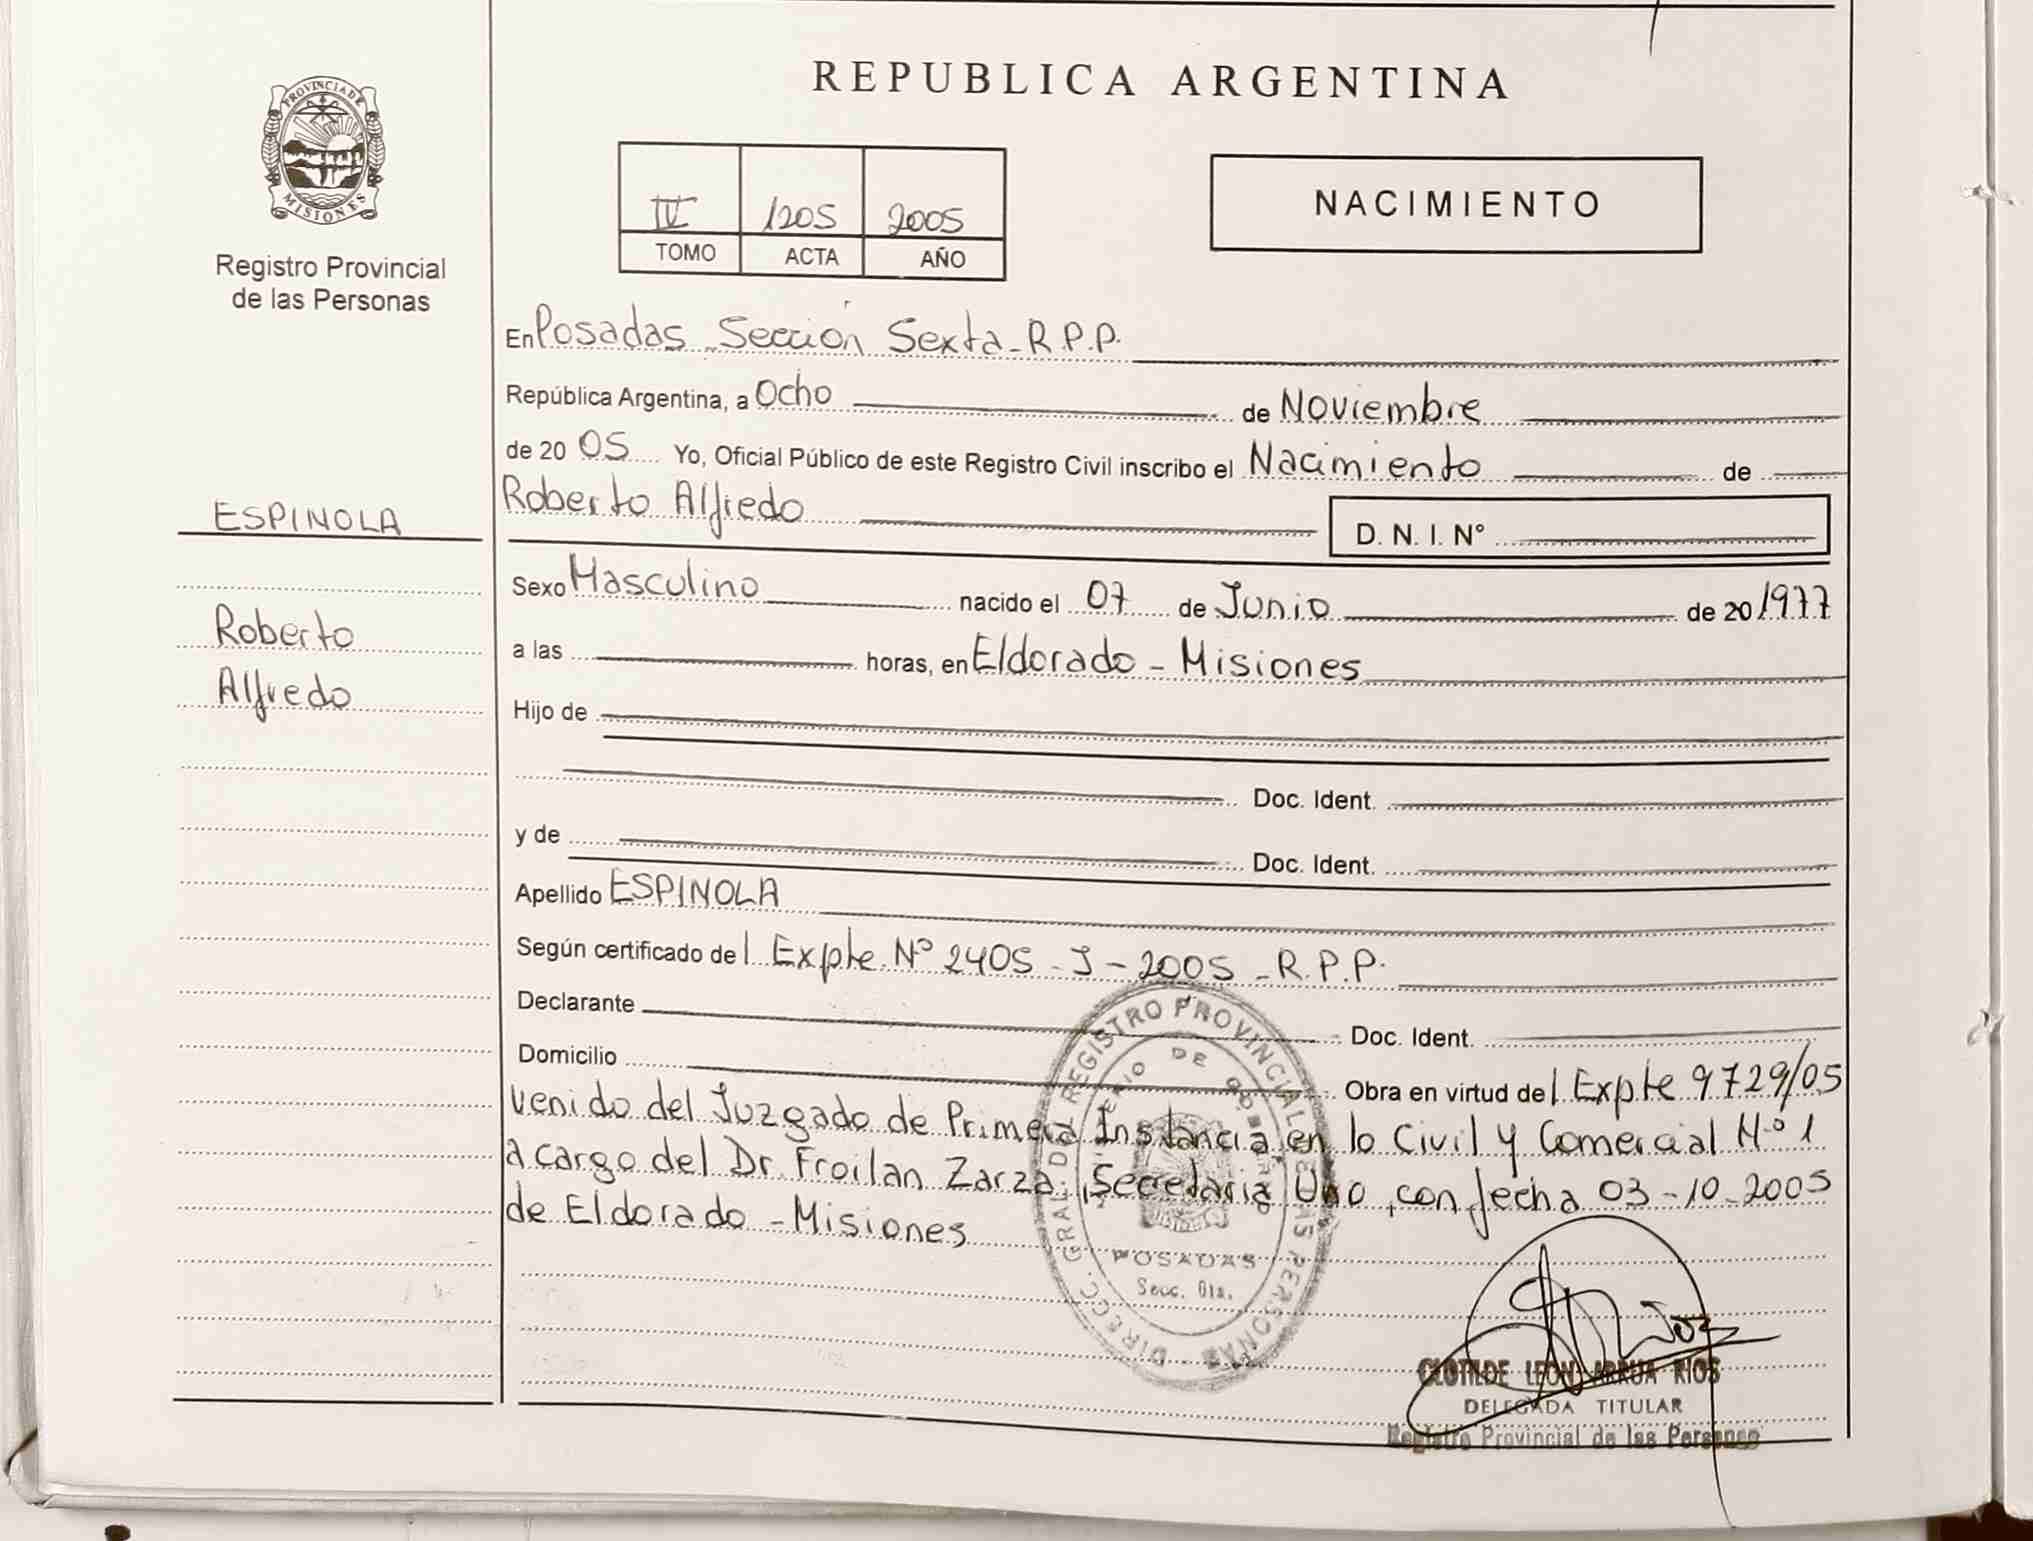 REPUBLICA ARGENTINA
PROVINCIA DE
MISIONES
Registro Provincial
de las Personas
IV 1205 2005
TOMO ACTA AÑO
NACIMIENTO
En Posadas - Sección Sexta - R.P.P.
República Argentina, a Ocho de Noviembre
de 20 05 Yo, Oficial Público de este Registro Civil inscribo el Nacimiento de
ESPINOLA
Roberto
Alfredo
Roberto Alfredo D. N. I. N°
Sexo Masculino nacido el 07 de Junio de 20 1977
a las horas, en Eldorado - Misiones
Hijo de
Doc. Ident.
y de Doc. Ident.
Apellido ESPINOLA
Según certificado de l Expte Nº 2405 - J - 2005 - R.P.P.
Declarante Doc. Ident.
Domicilio Obra en virtud de l Expte 9729/05
venido del Juzgado de Primera Instancia en lo Civil y Comercial N.º 1
a cargo del Dr. Froilan Zarza, Secretaria Uno, con fecha 03-10-2005
de Eldorado - Misiones
DIRECC. GRAL. DEL REGISTRO PROVINCIAL DE LAS PERSONAS
MINISTERIO DE GOBIERNO
POSADAS
Secc. 6ta.
CLOTILDE LEON ARRUA RIOS
DELEGADA TITULAR
Registro Provincial de las Personas